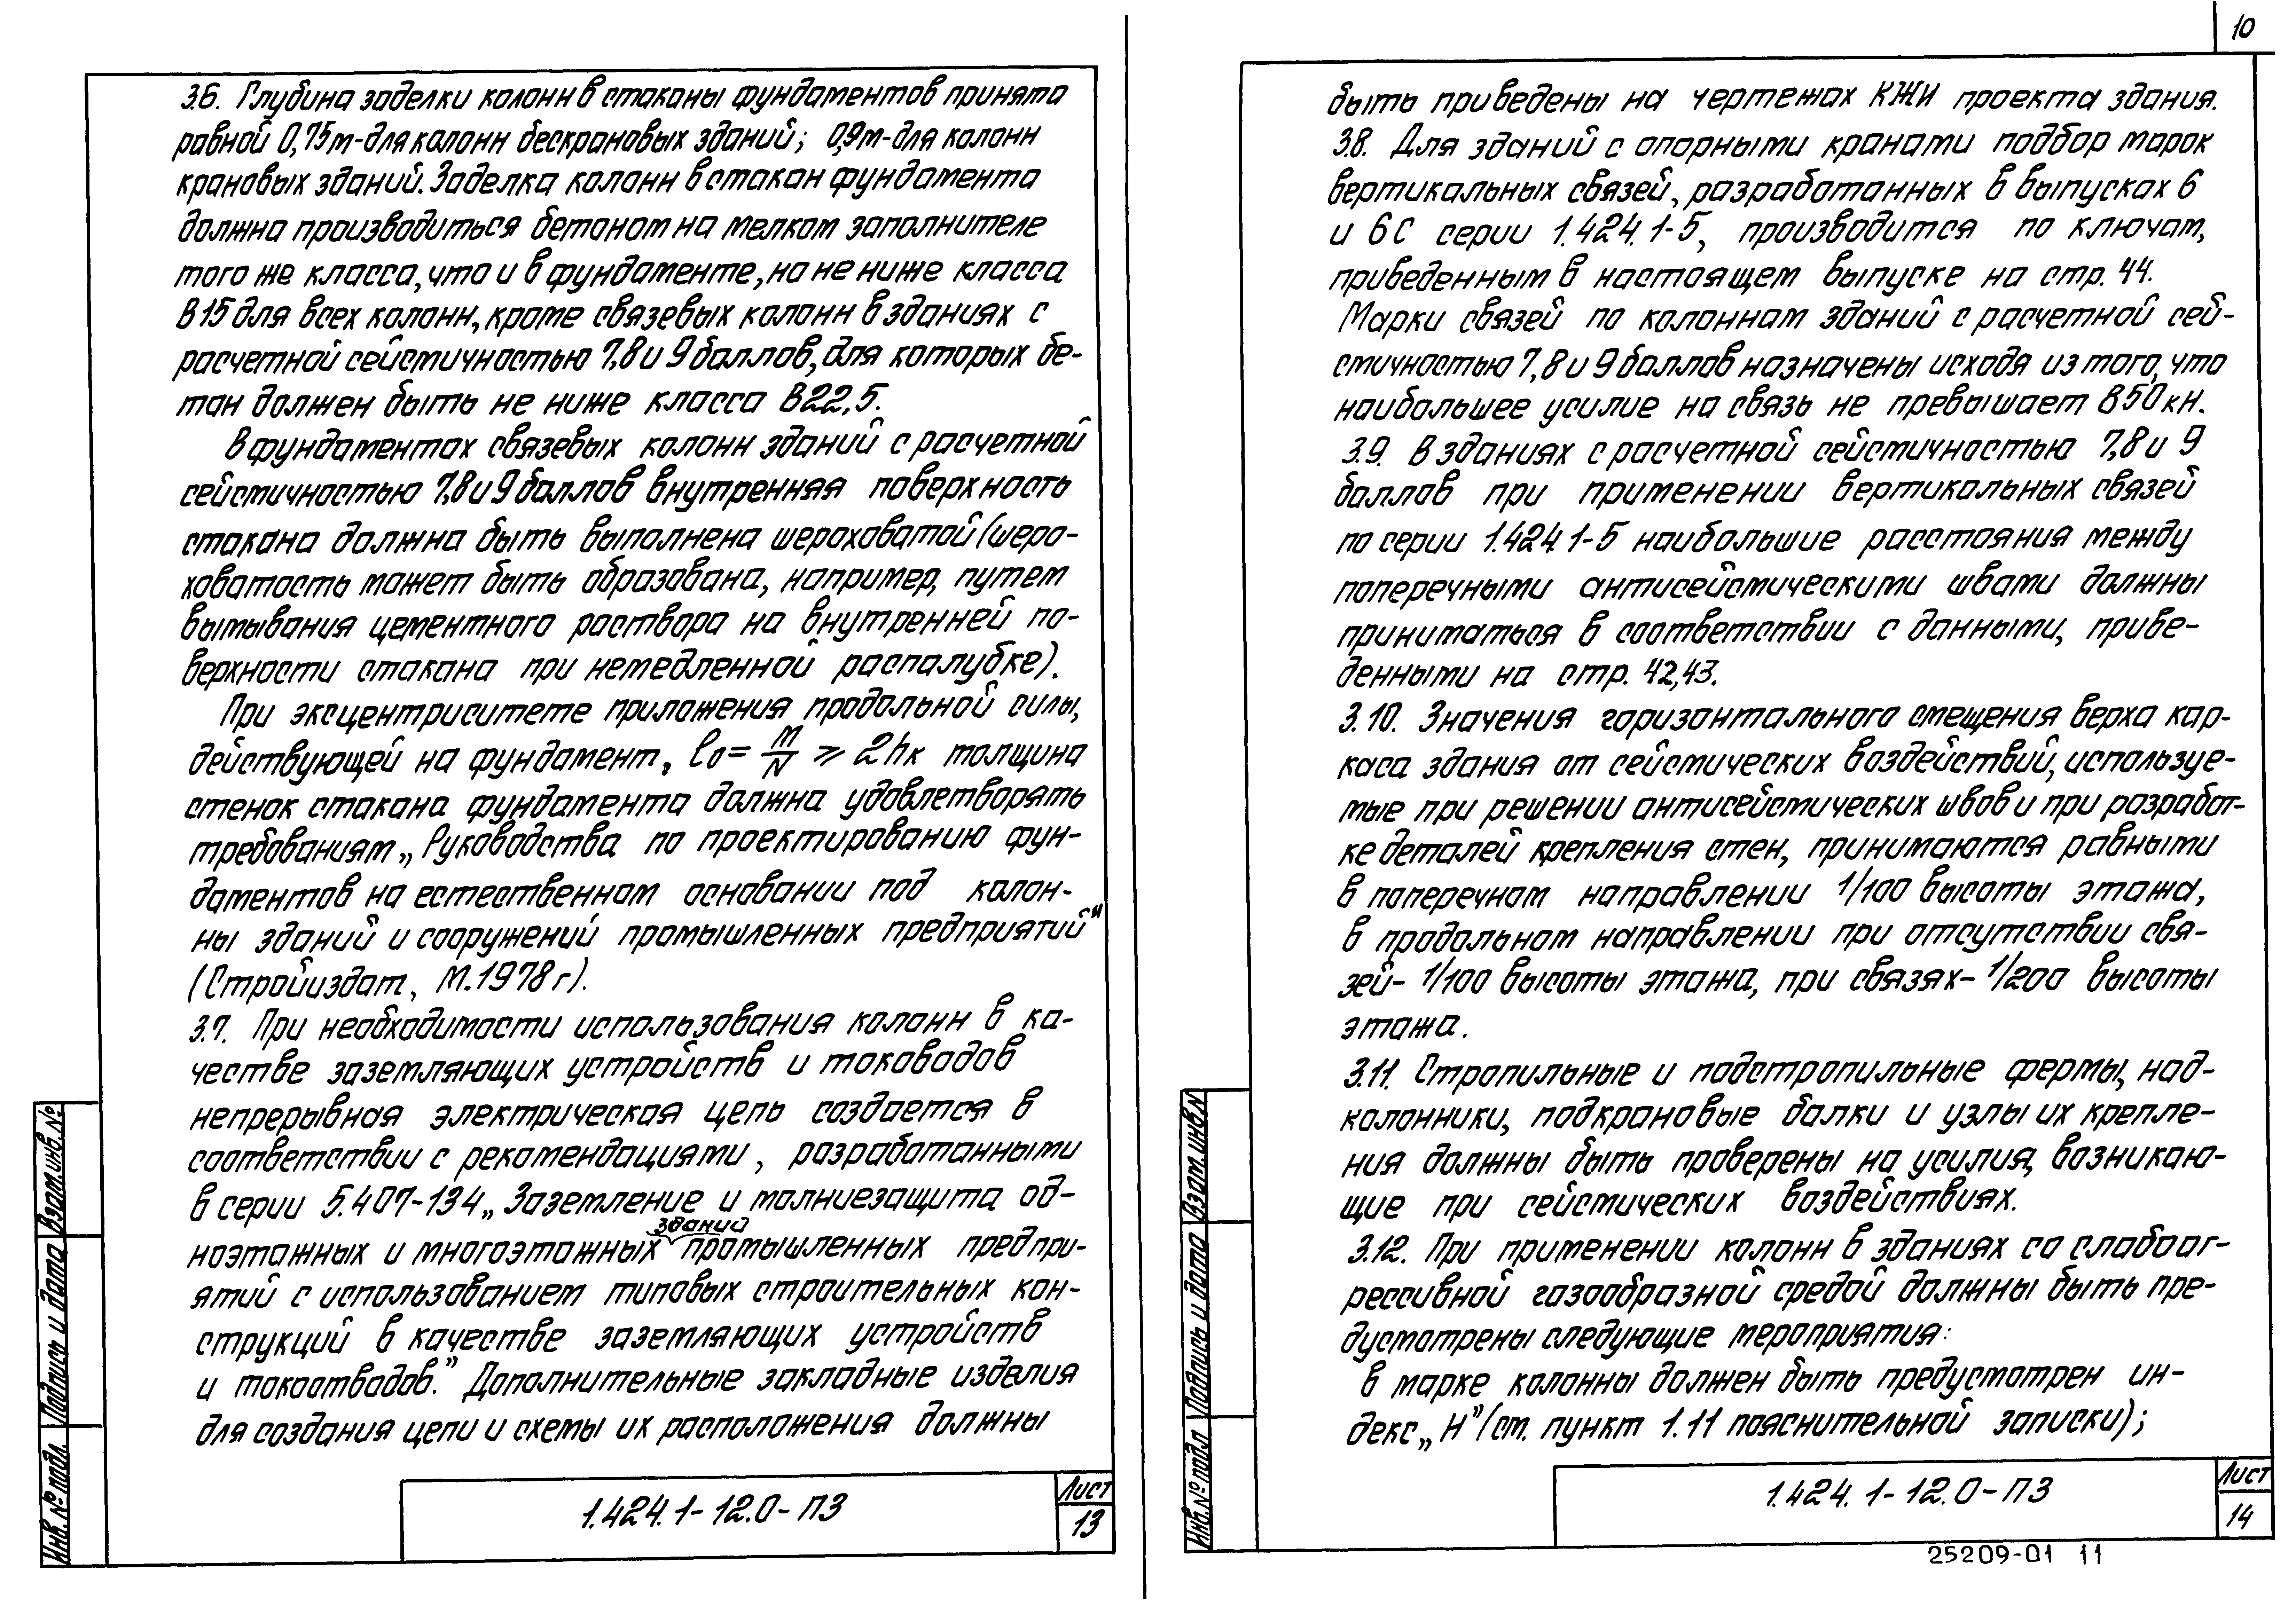 3.6. Глубина заделки колонн в стаканы фундаментов принята
равной 0,75м-для колонн бескрановых зданий; 0,9м-для колонн
крановых зданий. Заделка колонн в стакан фундамента
должна производиться бетоном на мелком заполнителе
того же класса, что и в фундаменте, но не ниже класса
В15 для всех колонн, кроме связевых колонн в зданиях с
расчетной сейсмичностью 7,8 и 9 баллов, для которых бе-
тон должен быть не ниже класса В22,5.
В фундаментах связевых колонн зданий с расчетной
сейсмичностью 7,8 и 9 баллов внутренняя поверхность
стакана должна быть выполнена шероховатой (шеро-
ховатость может быть образована, например, путем
вымывания цементного раствора на внутренней по-
верхности стакана при немедленной распалубке).
При эксцентриситете приложения продольной силы,
действующей на фундамент, l₀ = M/N ⩾ 2hк толщина
стенок стакана фундамента должна удовлетворять
требованиям „Руководства по проектированию фун-
даментов на естественном основании под колон-
ны зданий и сооружений промышленных предприятий"
(Стройиздат, М.1978г).
3.7. При необходимости использования колонн в ка-
честве заземляющих устройств и тоководов
непрерывная электрическая цепь создается в
соответствии с рекомендациями, разработанными
в серии 5.407-134 „Заземление и молниезащита од-
зданий
ноэтажных и многоэтажных промышленных предпри-
ятий с использованием типовых строительных кон-
струкций в качестве заземляющих устройств
и токоотводов." Дополнительные закладные изделия
для создания цепи и схемы их расположения должны
Взам.инв.№
Подпись и дата
Инв.№ подл.
1.424.1-12.0-ПЗ
Лист
13
10
быть приведены на чертежах КЖИ проекта здания.
3.8. Для зданий с опорными кранами подбор марок
вертикальных связей, разработанных в выпусках 6
и 6С серии 1.424.1-5, производится по ключам,
приведенным в настоящем выпуске на стр. 44.
Марки связей по колоннам зданий с расчетной сей-
смичностью 7,8 и 9 баллов назначены исходя из того, что
наибольшее усилие на связь не превышает 850кн.
3.9. В зданиях с расчетной сейсмичностью 7,8 и 9
баллов при применении вертикальных связей
по серии 1.424.1-5 наибольшие расстояния между
поперечными антисейсмическими швами должны
приниматься в соответствии с данными, приве-
денными на стр. 42,43.
3.10. Значения горизонтального смещения верха кар-
каса здания от сейсмических воздействий, используе-
мые при решении антисейсмических швов и при разработ-
ке деталей крепления стен, принимаются равными
в поперечном направлении 1/100 высоты этажа,
в продольном направлении при отсутствии свя-
зей- 1/100 высоты этажа, при связях- 1/200 высоты
этажа.
3.11. Стропильные и подстропильные фермы, над-
колонники, подкрановые балки и узлы их крепле-
ния должны быть проверены на усилия, возникаю-
щие при сейсмических воздействиях.
3.12. При применении колонн в зданиях со слабоаг-
рессивной газообразной средой должны быть пре-
дусмотрены следующие мероприятия:
в марке колонны должен быть предусмотрен ин-
декс „Н" (см. пункт 1.11 пояснительной записки);
Взам.инв.№
Подпись и дата
Инв.№ подл
1.424.1-12.0-ПЗ
Лист
14
25209-01 11